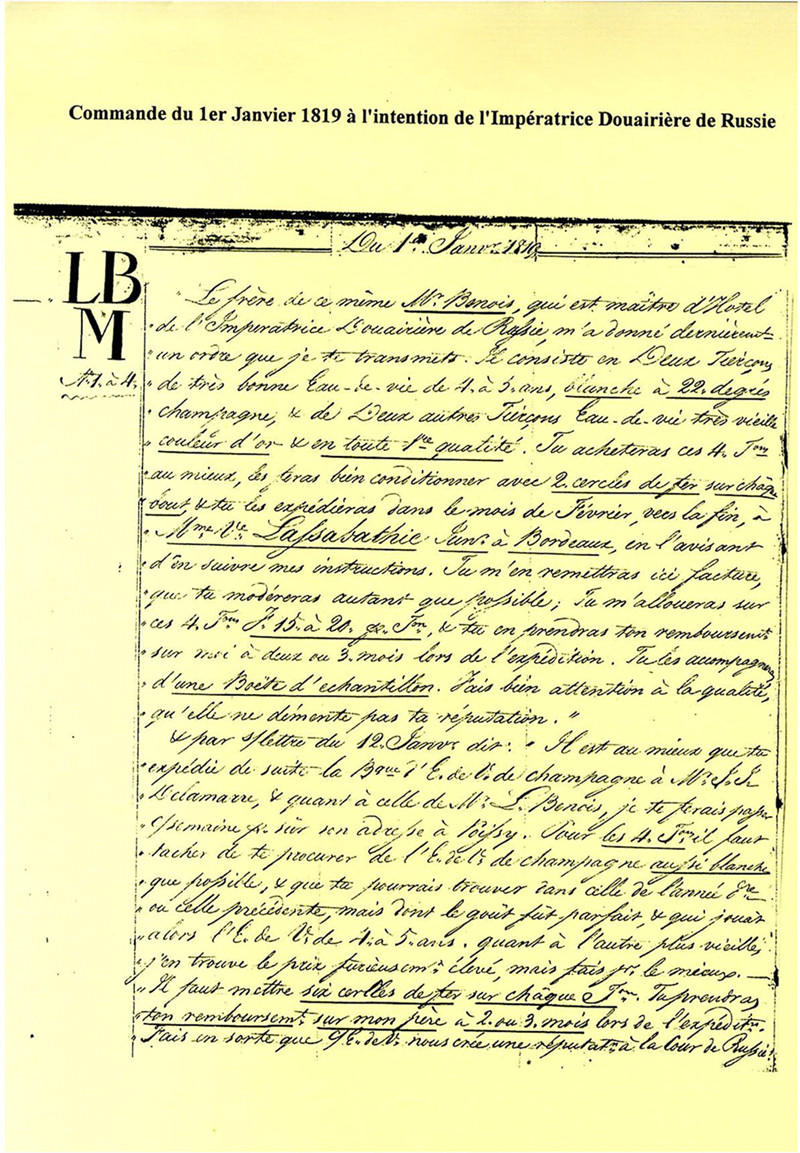 Commande du 1er Janvier 1819 à l'intention de l'Impératrice Douairière de Russie
Du 1er Janvr 1819
LB
M
N. 1. à 4.
" Le frère de ce même Mr. Benois, qui est maître d'Hotel
" de l'Imperatrice Douairière de Russie, m'a donné dernièremt.
" un ordre que je te transmets. Il consiste en Deux Tierçons
" de très bonne Eau-de-vie de 4. à 5. ans, blanche à 22. degrés
" champagne, & de Deux autres Tierçons Eau-de-vie très vieille
" couleur d'or & en toute 1re qualité. Tu acheteras ces 4. Tons
" au mieux, les feras bien conditionner avec 2. cercles de fer sur châqe
" bout, & tu les expédieras dans le mois de Février, vers la fin, à
" Mme. Ve. Lassabathie Junr. à Bordeaux, en l'avisant
" d'en suivre mes instructions. Tu m'en remettras ici facture,
" que tu modéreras autant que possible; Tu m'alloueras sur
" ces 4. Tons F. 15. à 20. pr. Ton, & tu en prendras ton remboursemt.
" sur moi à deux ou 3. mois lors de l'expédition. Tu les accompagneras
" d'une Boëte d'echantillon. Fais bien attention à la qualité,
" qu'elle ne démente pas ta réputation. "
& par s/lettre du 12. Janvr. dit: " Il est au mieux que tu
" expédie de suite la Bque d'E. de V. de champagne à Mr. J. J.
" Delamarre, & quant à celle de Mr. L. Benois, je te ferais passer
" c/semaine pr. sûr son adresse à Poissy. Pour les 4. Tons il faut
" tacher de te procurer de l'E. de V. de champagne aussi blanche
" que possible, & que tu pourrais trouver dans celle de l'année dre
" ou celle precédente, mais dont le goût fût parfait, & qui jouat
" alors l'E. de V. de 4. à 5. ans. quant à l'autre plus vieille,
" j'en trouve le prix furieusemt. élevé, mais fais pr. le mieux. —
" Il faut mettre six cerlles de fer sur châque Ton. Tu prendras
" ton remboursemt. sur mon père à 2. ou 3. mois lors de l'expéditon.
" Fais en sorte que c/E. de V. nous crée une réputaton à la Cour de Russie.